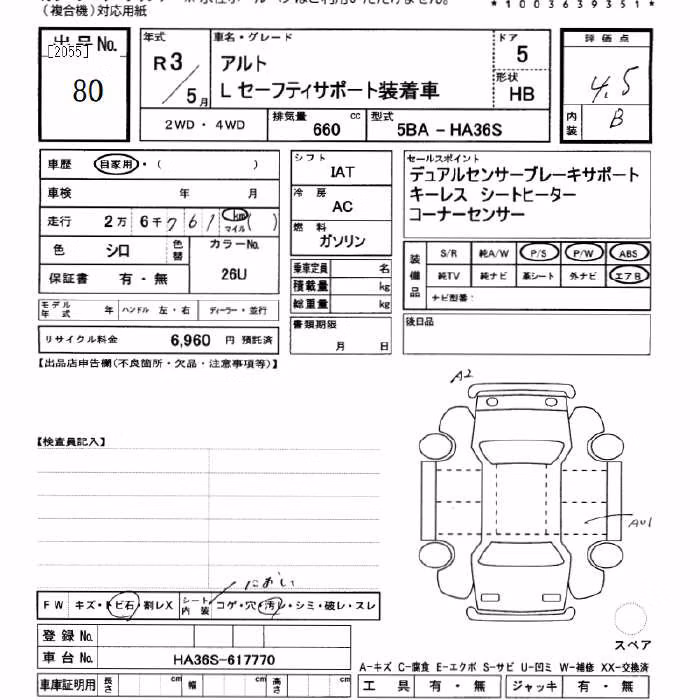 （複合機）対応用紙
*1003639351*
出品No.
[2055]
80
年式
R 3
5月
車名・グレード
アルト
L セーフティサポート装着車
ドア
5
形状
HB
評価点
4.5
内装
B
2WD・4WD
排気量
660 cc
型式
5BA - HA36S
車歴 自家用・（ ）
車検 年 月
走行 2万 6千761 km マイル ( )
色 シロ 色替 カラーNo.
26U
保証書 有・無
モデル年式 年 ハンドル 左・右 ディーラー・並行
リサイクル料金 6,960 円 預託済
シフト
IAT
冷房
AC
燃料
ガソリン
乗車定員 名
積載量 kg
総重量 kg
書類期限
月 日
セールスポイント
デュアルセンサーブレーキサポート
キーレス シートヒーター
コーナーセンサー
装備品
S/R 純A/W P/S P/W ABS
純TV 純ナビ 革シート 外ナビ エアB
ナビ型番：
後日品
【出品店申告欄（不良箇所・欠品・注意事項等）】
A2
AU1
【検査員記入】
におい
FW キズ・トビ石・割レX シート内装 コゲ・穴・汚レ・シミ・破レ・スレ
登録No.
車台No. HA36S-617770
車庫証明用 長さ cm 幅 cm 高さ cm
スペア
A-キズ C-腐食 E-エクボ S-サビ U-凹ミ W-補修 XX-交換済
工具 有・無 ジャッキ 有・無